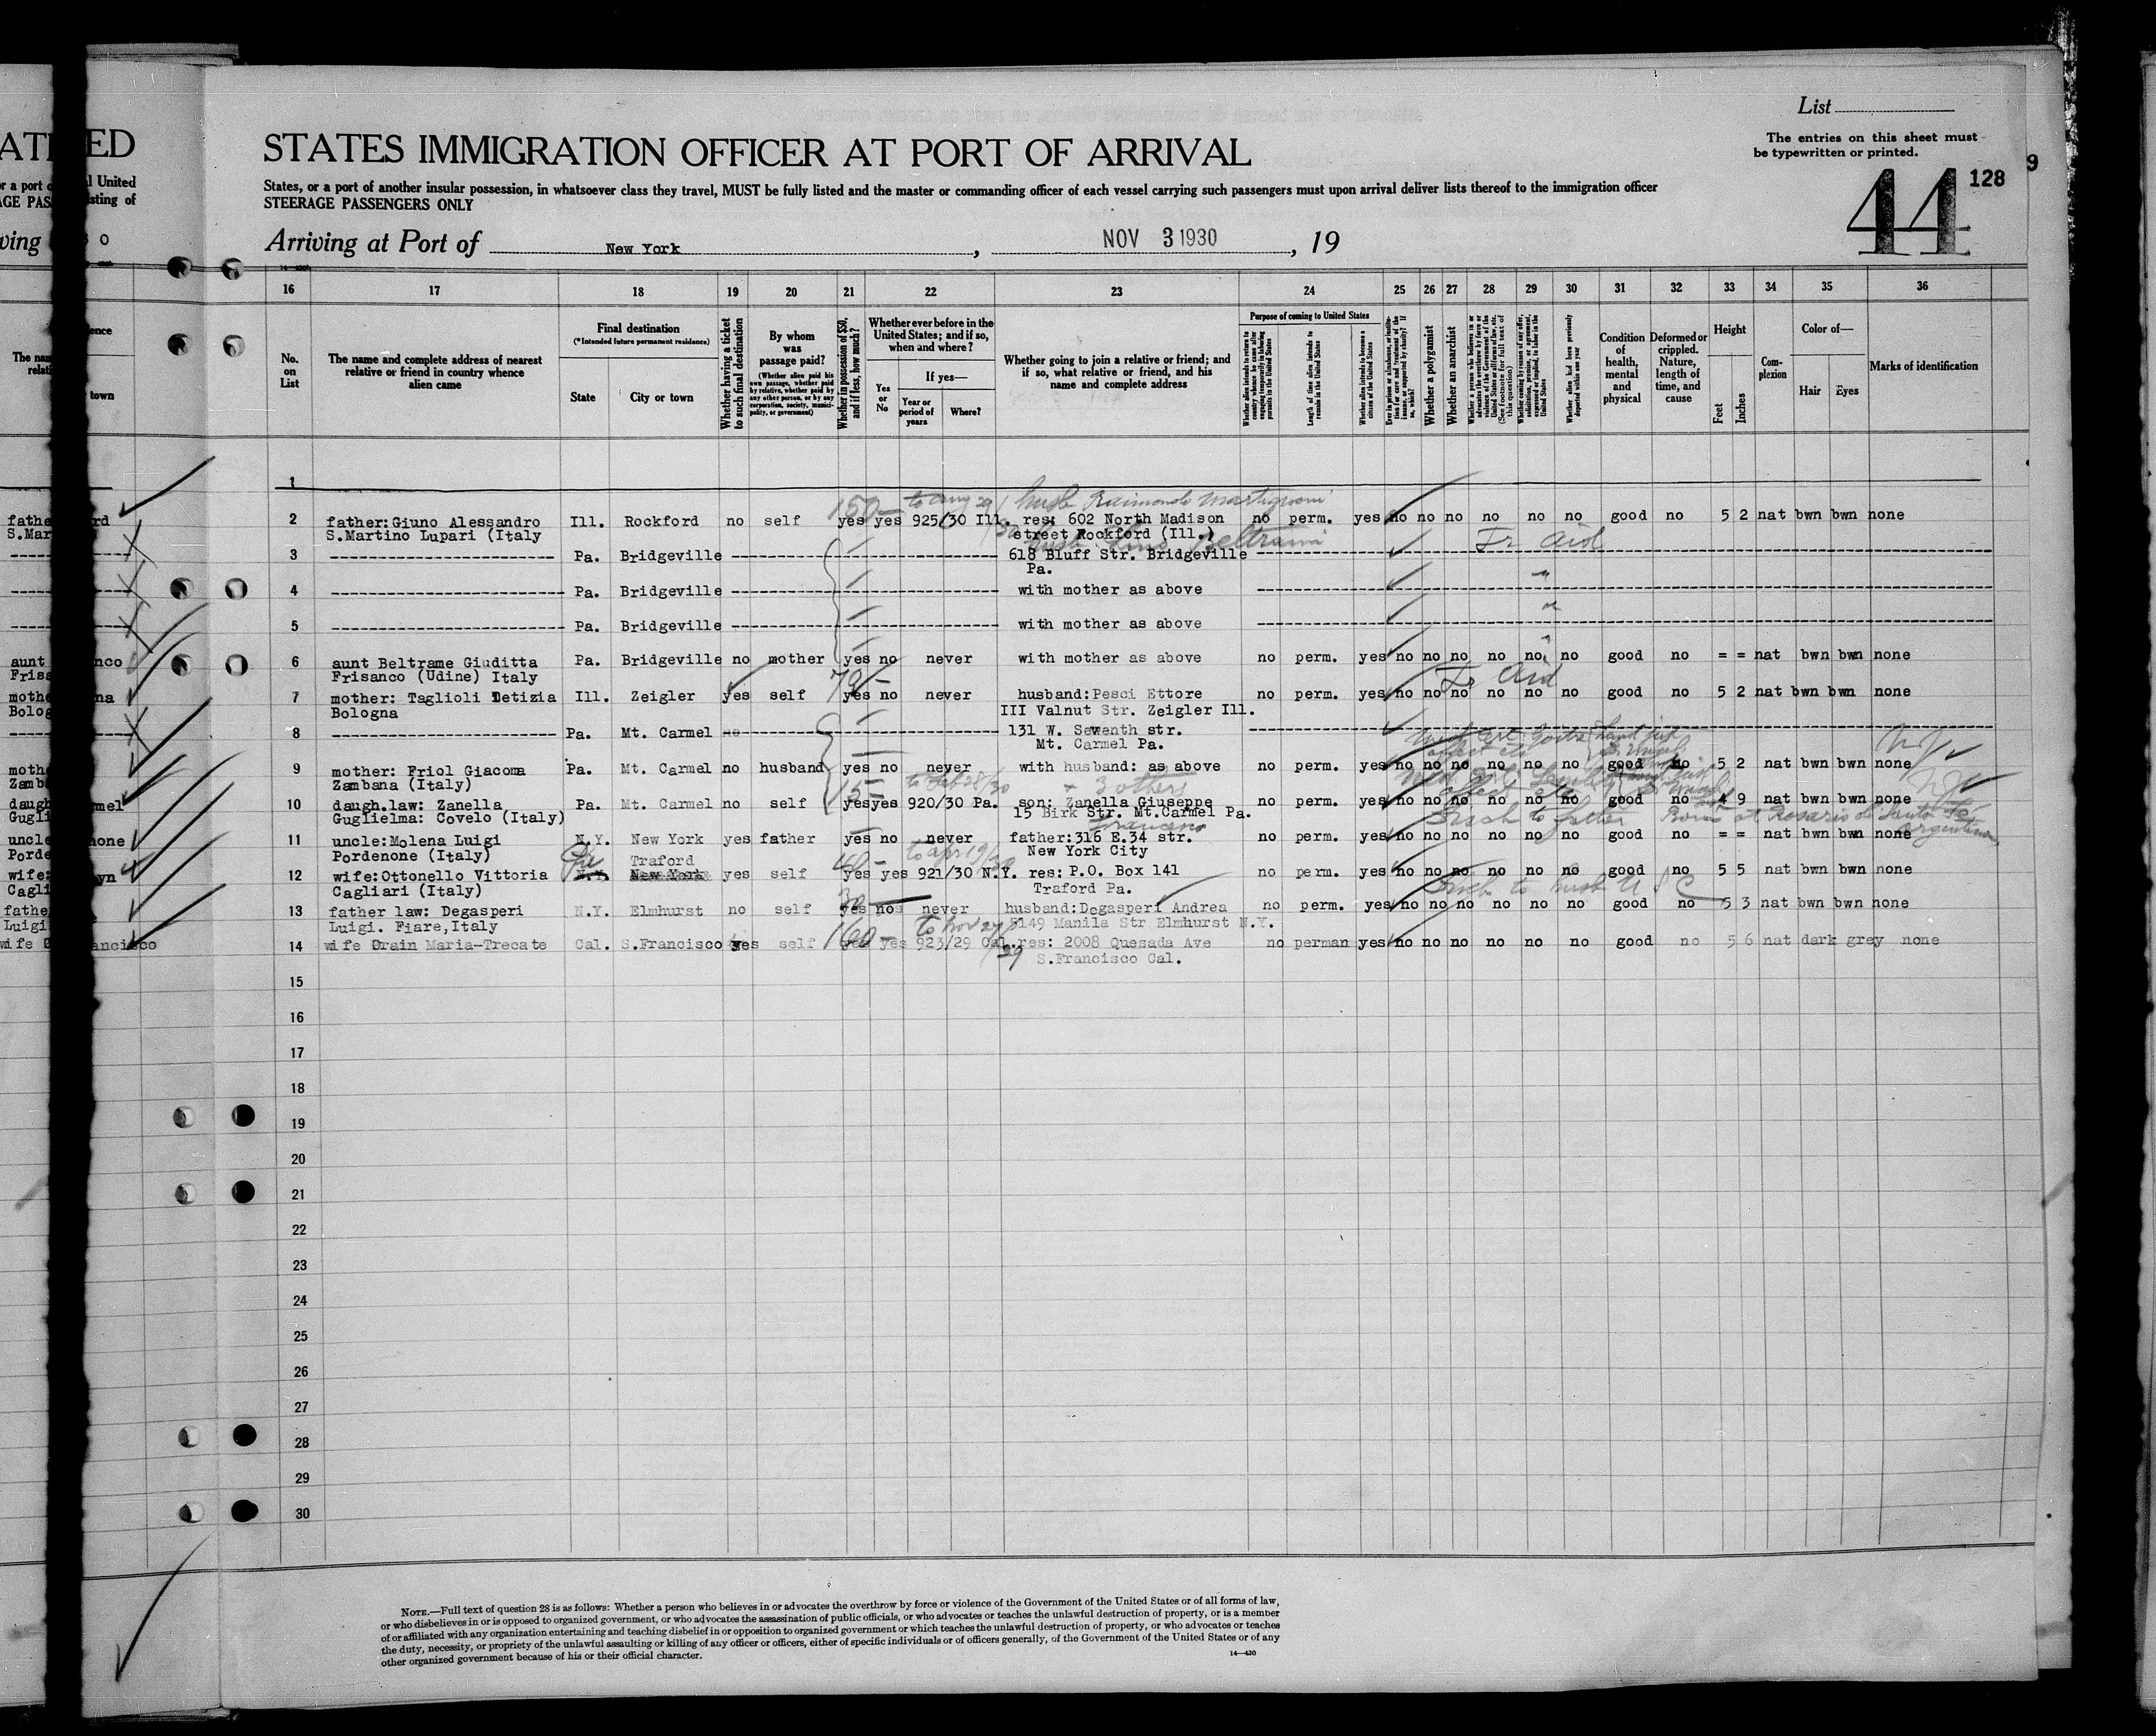 ATI
ED
r a port o
l United
AGE PAS
sting of
ving
3 0
List
The entries on this sheet must
be typewritten or printed.
44
128
9
STATES IMMIGRATION OFFICER AT PORT OF ARRIVAL
States, or a port of another insular possession, in whatsoever class they travel, MUST be fully listed and the master or commanding officer of each vessel carrying such passengers must upon arrival deliver lists thereof to the immigration officer
STEERAGE PASSENGERS ONLY
Arriving at Port of New York, NOV 3 1930, 19
16 17 18 19 20 21 22 23 24 25 26 27 28 29 30 31 32 33 34 35 36
No. on List
The name and complete address of nearest relative or friend in country whence alien came
Final destination
(*Intended future permanent residence)
State
City or town
Whether having a ticket to such final destination
By whom was passage paid?
(Whether alien paid his own passage, whether paid by relative, whether paid by any other person, or by any corporation, society, municipality, or government)
Whether in possession of $50, and if less, how much?
Whether ever before in the United States; and if so, when and where?
Yes or No
If yes—
Year or period of years
Where?
Whether going to join a relative or friend; and if so, what relative or friend, and his name and complete address
Purpose of coming to United States
Length of time alien intends to remain in the United States
Whether alien intends to become a citizen of the United States
Whether a polygamist
Whether an anarchist
Condition of health, mental and physical
Deformed or crippled. Nature, length of time, and cause
Height
Feet
Inches
Complexion
Color of—
Hair
Eyes
Marks of identification
1
150— husb Raimondo
2 father: Giuno Alessandro Ill. Rockford no self yes yes 925/30 Ill. res: 602 North Madison no perm. yes no no no no no no good no 5 2 nat bwn bwn none
S.Martino Lupari (Italy street Rockford (Ill.)
Beltrami
3 Pa. Bridgeville 618 Bluff Str. Bridgeville
Pa.
Aid
4 Pa. Bridgeville with mother as above
5 Pa. Bridgeville with mother as above
6 aunt Beltrame Giuditta Pa. Bridgeville no mother yes no never with mother as above no perm. yes no no no no no no good no = = nat bwn bwn none
Frisanco (Udine) Italy
Aid
7 mother: Taglioli Detizia Ill. Zeigler yes self yes no never husband: Pesci Ettore no perm. yes no no no no no no good no 5 2 nat bwn bwn none
Bologna III Valnut Str. Zeigler Ill.
8 Pa. Mt. Carmel no 131 W. Seventh str.
Mt. Carmel Pa.
9 mother: Friol Giacoma Pa. Mt. Carmel no husband yes no never with husband: as above no perm. yes no no no no no no good no 5 2 nat bwn bwn none
Zambana (Italy)
15— to Feb 28/30 + 3 others
10 daugh.law: Zanella Pa. Mt. Carmel no self yes yes 920/30 Pa. son: Zanella Giuseppe no perm. yes no no no no no no good no 4 9 nat bwn bwn none
Guglielma: Covelo (Italy) 15 Birk Str. Mt.Carmel Pa.
Francesco to father Born at Rosario de Santa Fe Argentina
11 uncle: Molena Luigi N.Y. New York yes father yes no never father: 316 E.34 str. no perm. yes no no no no no no good no = = nat bwn bwn none
Pordenone (Italy) New York City
Traford 40— to apr 19/30
12 wife: Ottonello Vittoria N.Y. New York yes self yes yes 921/30 N.Y. res: P.O. Box 141 no perm. yes no no no no no no good no 5 5 nat bwn bwn none
Cagliari (Italy) Traford Pa.
30 to husb
13 father law: Degasperi N.Y. Elmhurst no self yes no never husband: Degasperi Andrea no perm. yes no no no no no no good no 5 3 nat bwn bwn none
Luigi. Fiare, Italy 5149 Manila Str Elmhurst N.Y.
160— to nov 29/29
14 wife Orain Maria-Trecate Cal. S.Francisco yes self yes yes 923/29 Cal. res: 2008 Quesada Ave no perman yes no no no no no no good no 5 6 nat dark grey none
S.Francisco Cal.
15
16
17
18
19
20
21
22
23
24
25
26
27
28
29
30
NOTE.—Full text of question 28 is as follows: Whether a person who believes in or advocates the overthrow by force or violence of the Government of the United States or of all forms of law,
or who disbelieves in or is opposed to organized government, or who advocates the assassination of public officials, or who advocates or teaches the unlawful destruction of property, or is a member
of or affiliated with any organization entertaining and teaching disbelief in or opposition to organized government or which teaches the unlawful destruction of property, or who advocates or teaches
the duty, necessity, or propriety of the unlawful assaulting or killing of any officer or officers, either of specific individuals or of officers generally, of the Government of the United States or of any
other organized government because of his or their official character.
14—430